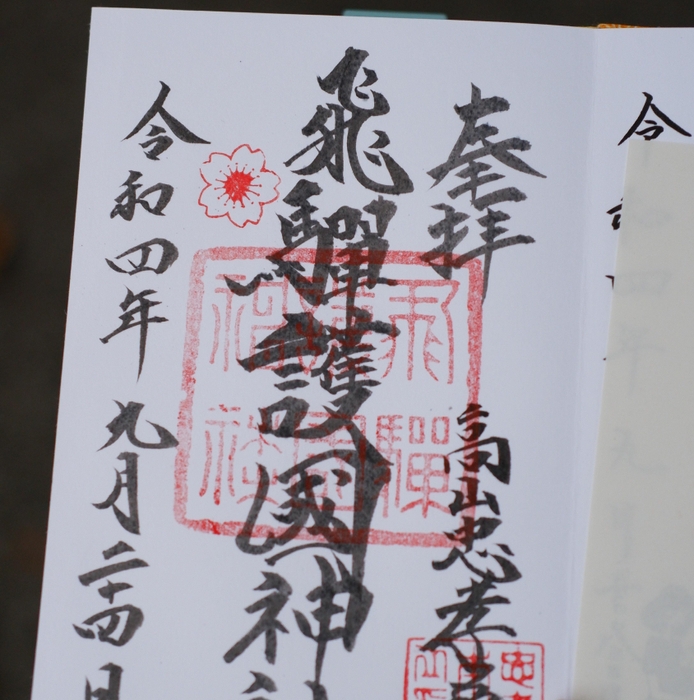 奉拝
高山忠孝
飛驒護國神社
令和四年九月二十四日
飛驒護國神社
令